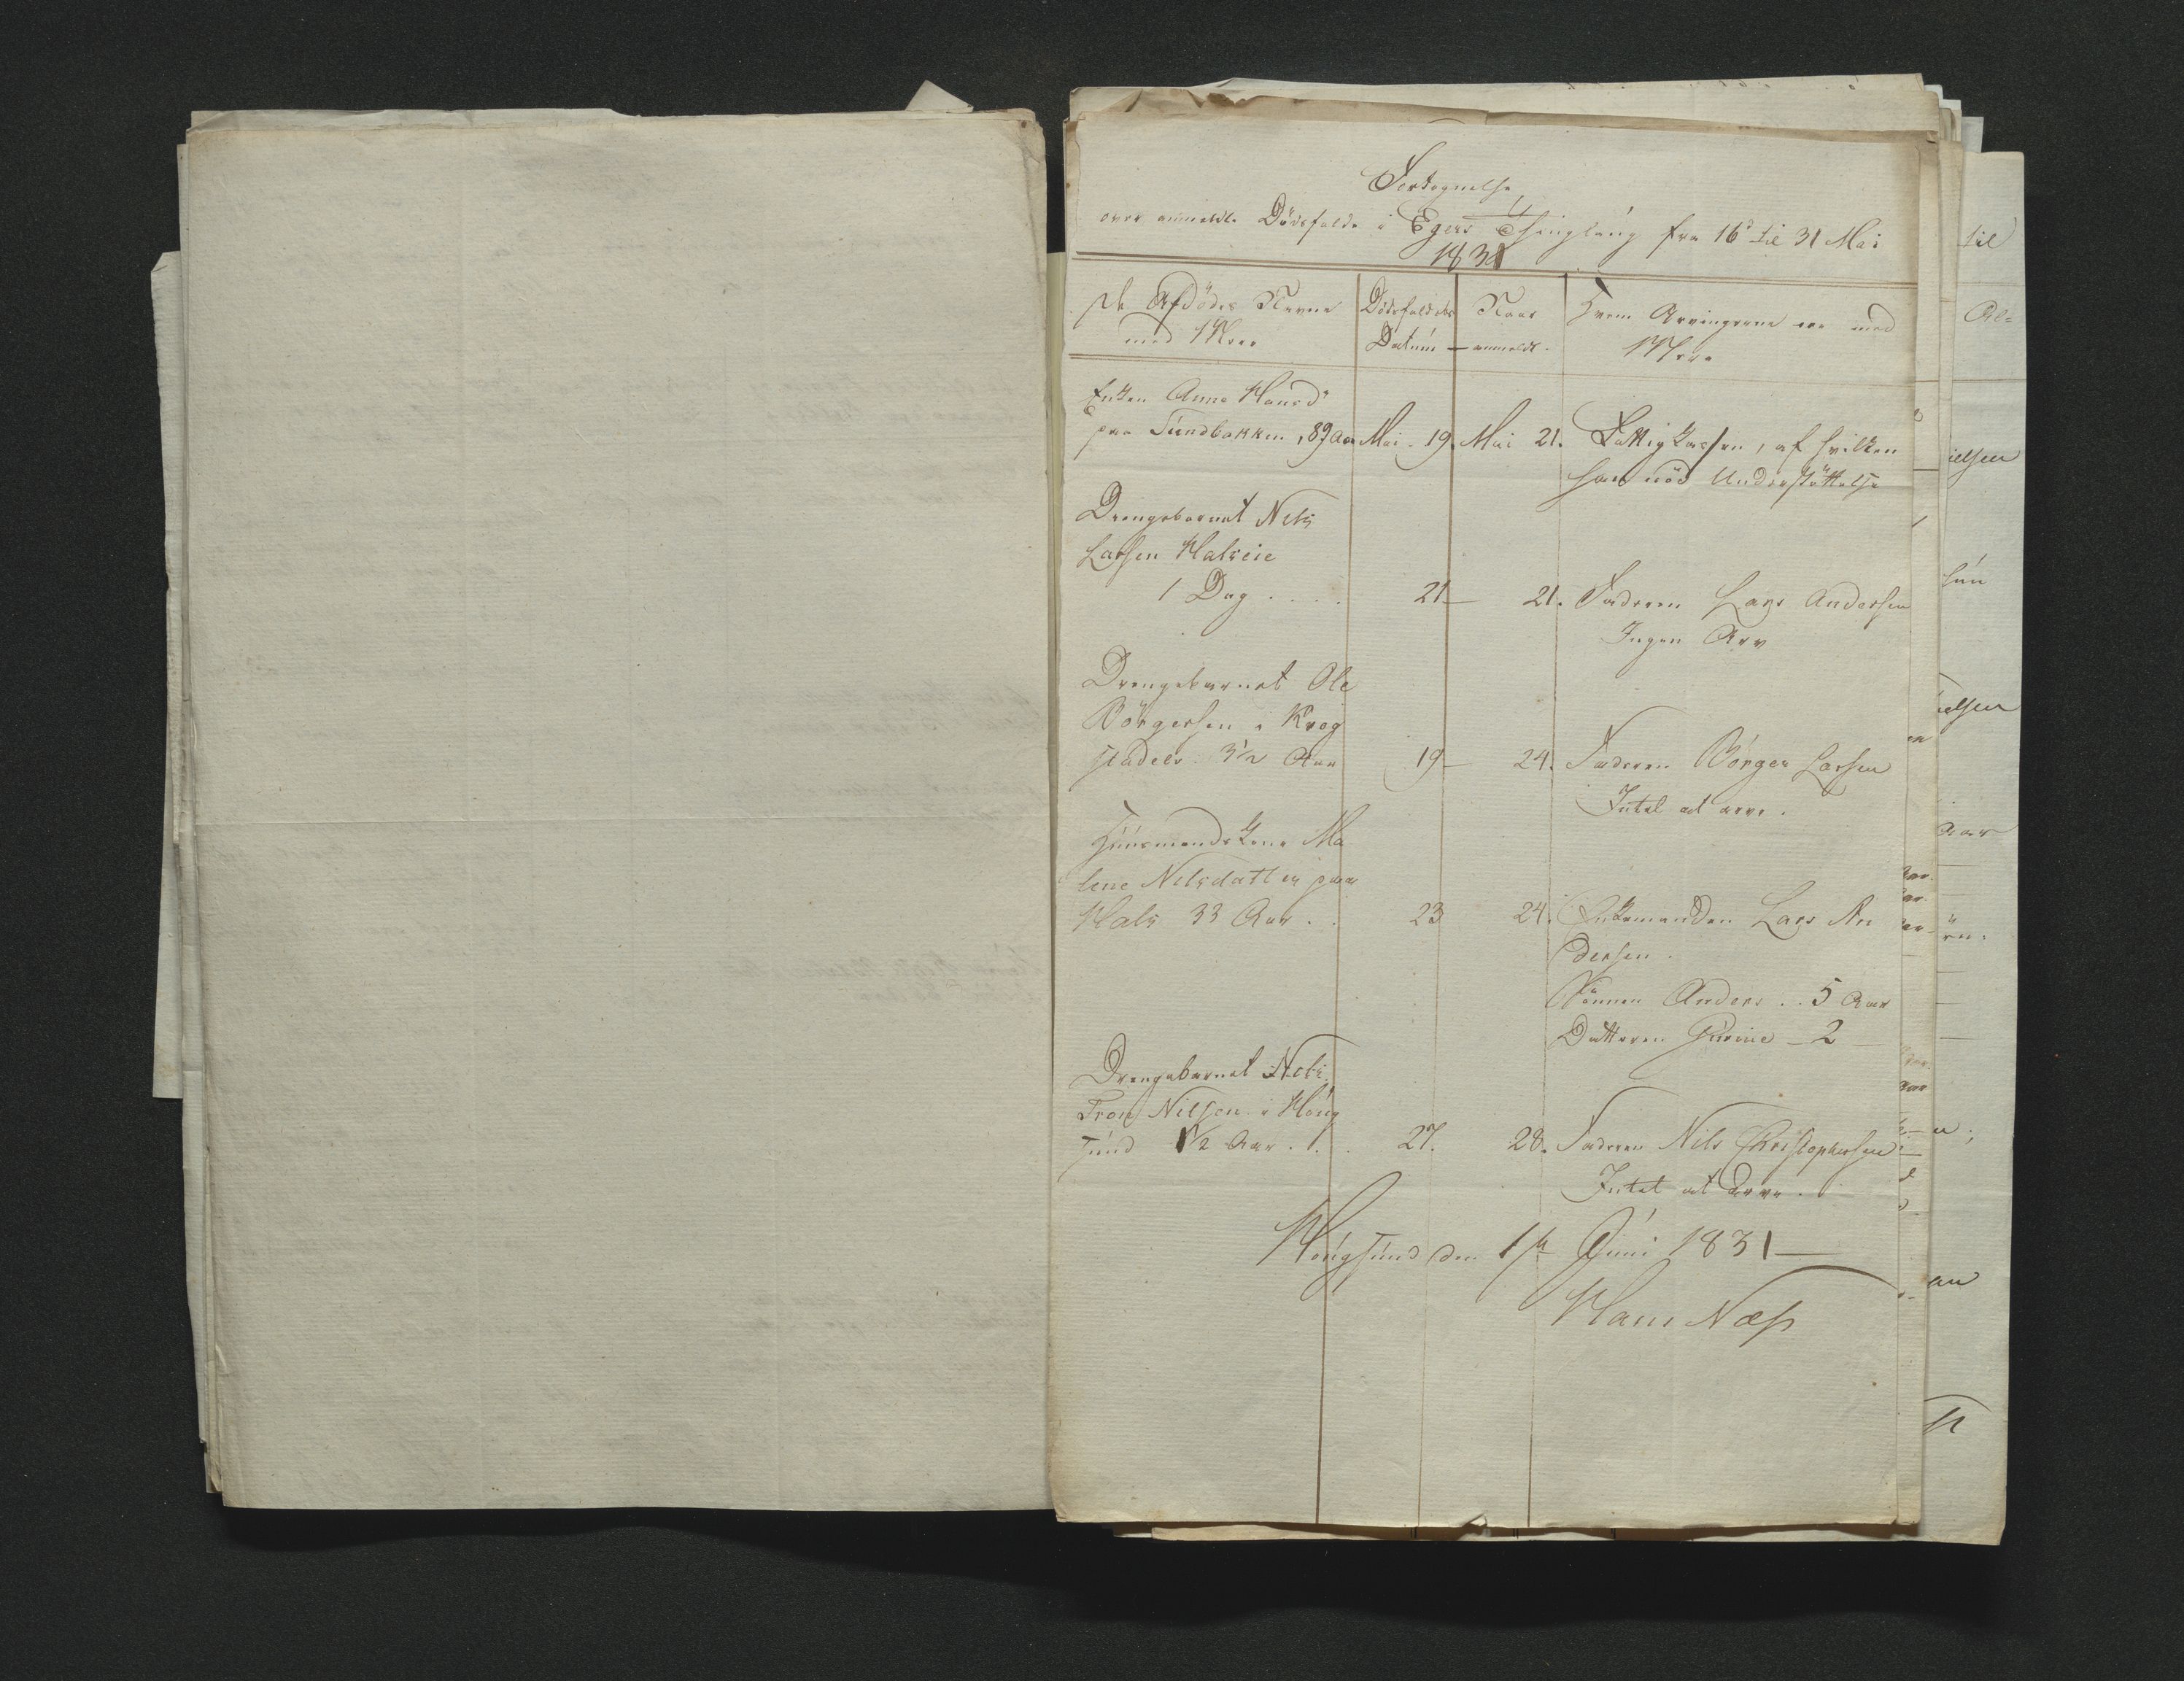 Fortegnelse
over anmeldte Dödsfalde i Egers Thinglaug fra 16de til 31 Mai
1831
De Afdödes Navne
med Mere
Dödsfaldets
Datum
Naar
anmeldt.
Hvem Arvingerne ere med
Mere
Enken Anne Hansdr
paa Sundbakken, 89 Aar Mai 19. Mai 21. Fattigkassen, af hvilken
han nöd Understöttelse
Drengebarnet Nils
Larsen Halseie
1 Dag . . . . 21 — 21. Faderen Lars Andersen
Ingen Arv
Drengebarnet Ole
Börgersen i Krog
stadelv. 3½ Aar 19 — 24. Faderen Börger Larsen
Intet at arve.
Huusmandskone Ma
lene Nilsdatter paa
Hals 33 Aar . . 23 24. Enkemanden Lars An
dersen.
Sönnen Anders . . 5 Aar
Datteren Gurine — 2 —
Drengebarnet
Nilsen i Houg
sund ½ Aar . . . 27. 28. Faderen Nils Christophersen
Intet at arve.
Hougsund den 1ste Juni 1831 —
Hans Næss
til
ielsen
elsen
Aar